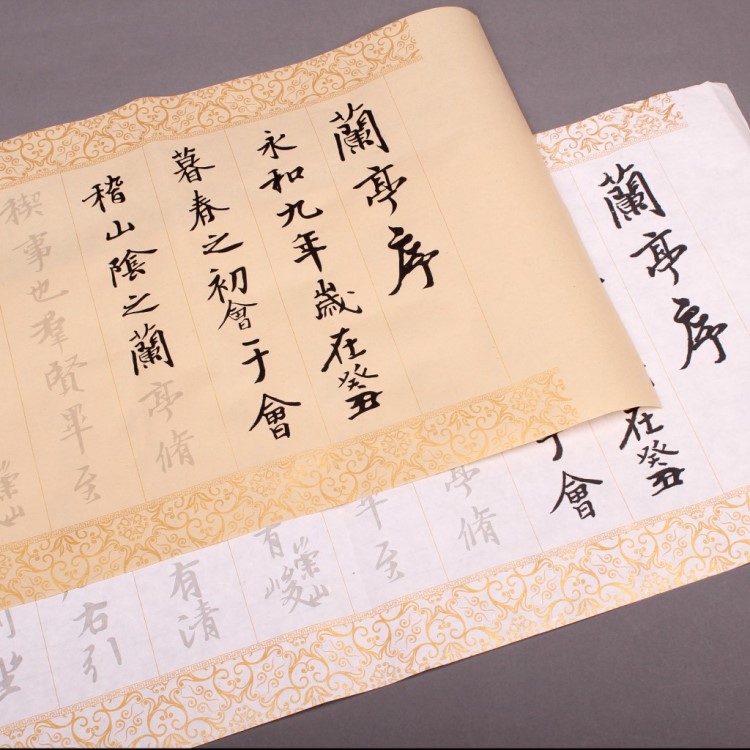 蘭亭序
永和九年歲在癸丑
暮春之初會于會
稽山陰之蘭亭脩
禊事也羣賢畢至
崇山
蘭亭序
在癸丑
于會
亭脩
畢至
有崇山峻
有清
右引